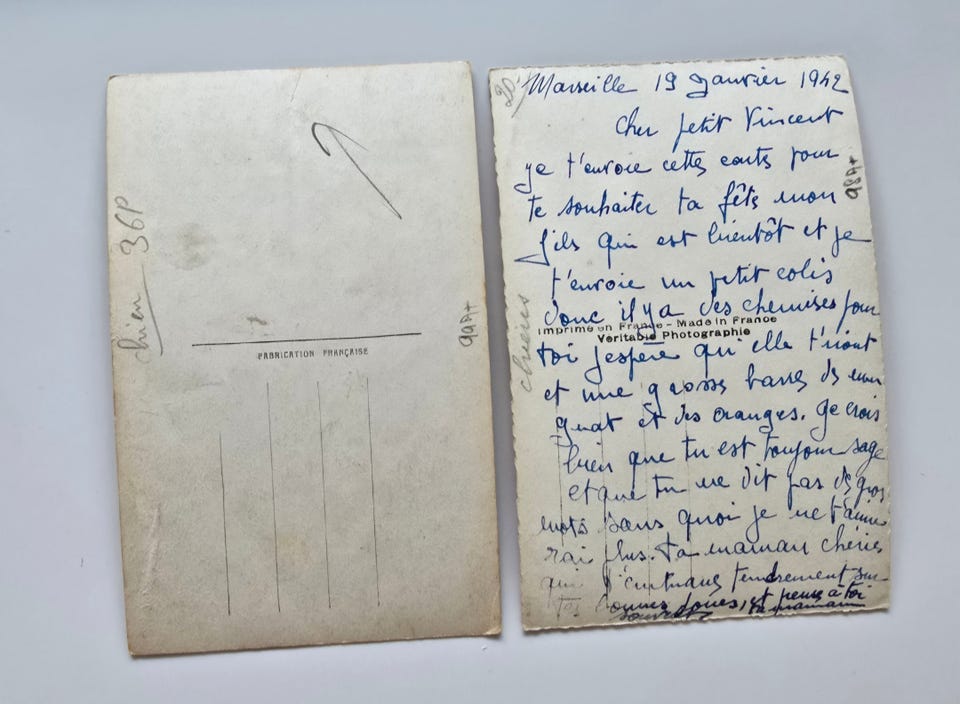 chien 36P
99A+
FABRICATION FRANÇAISE
20
Marseille 19 Janvier 1942
Cher petit Vincent
je t'envoie cette carte pour
te souhaiter ta fête mon
fils qui est bientôt et je
t'envoie un petit colis
donc il y a des chemises pour
Imprimé en France - Made in France
Véritable Photographie
toi j'espère qu'elle t'iront
et une grosse barre de nou
guat et des oranges. Je crois
bien que tu est toujour sage
et que tu ne dit pas de gros
mots sans quoi je ne t'aime
rai plus. Ta maman chérie
qui t'embrasse tendrement sur
tes bonnes joues, et pense à toi
souvent ta maman
98A+
chiens